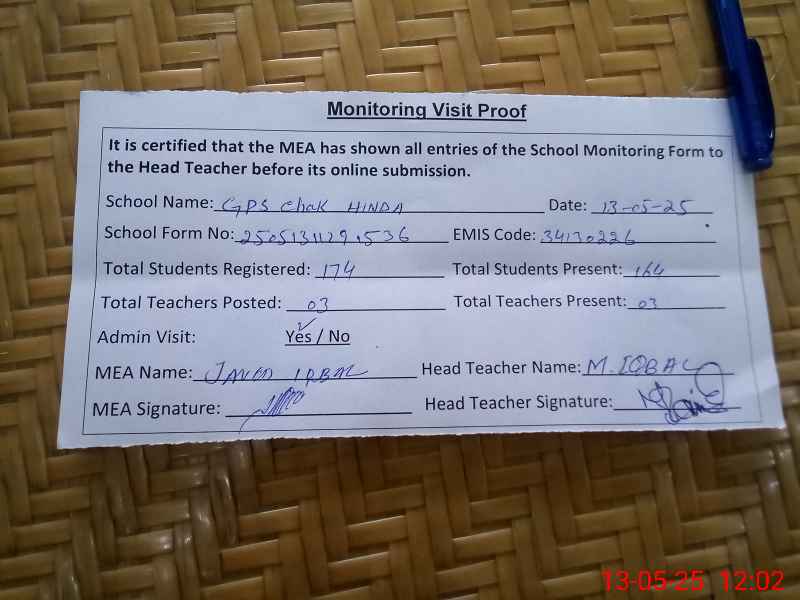 Monitoring Visit Proof
It is certified that the MEA has shown all entries of the School Monitoring Form to
the Head Teacher before its online submission.
School Name: GPS Chak HINDA Date: 13-05-25
School Form No: EMIS Code: 34130226
Total Students Registered: 174 Total Students Present: 164
Total Teachers Posted: 03 Total Teachers Present: 03
Admin Visit: Yes / No
MEA Name: JAVED IQBAL Head Teacher Name: M. IQBAL
MEA Signature: Head Teacher Signature:
13-05-25 12:02